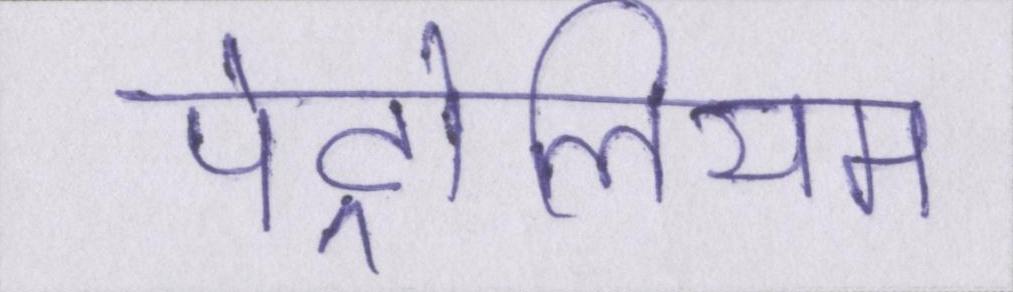 पेट्रोलियम